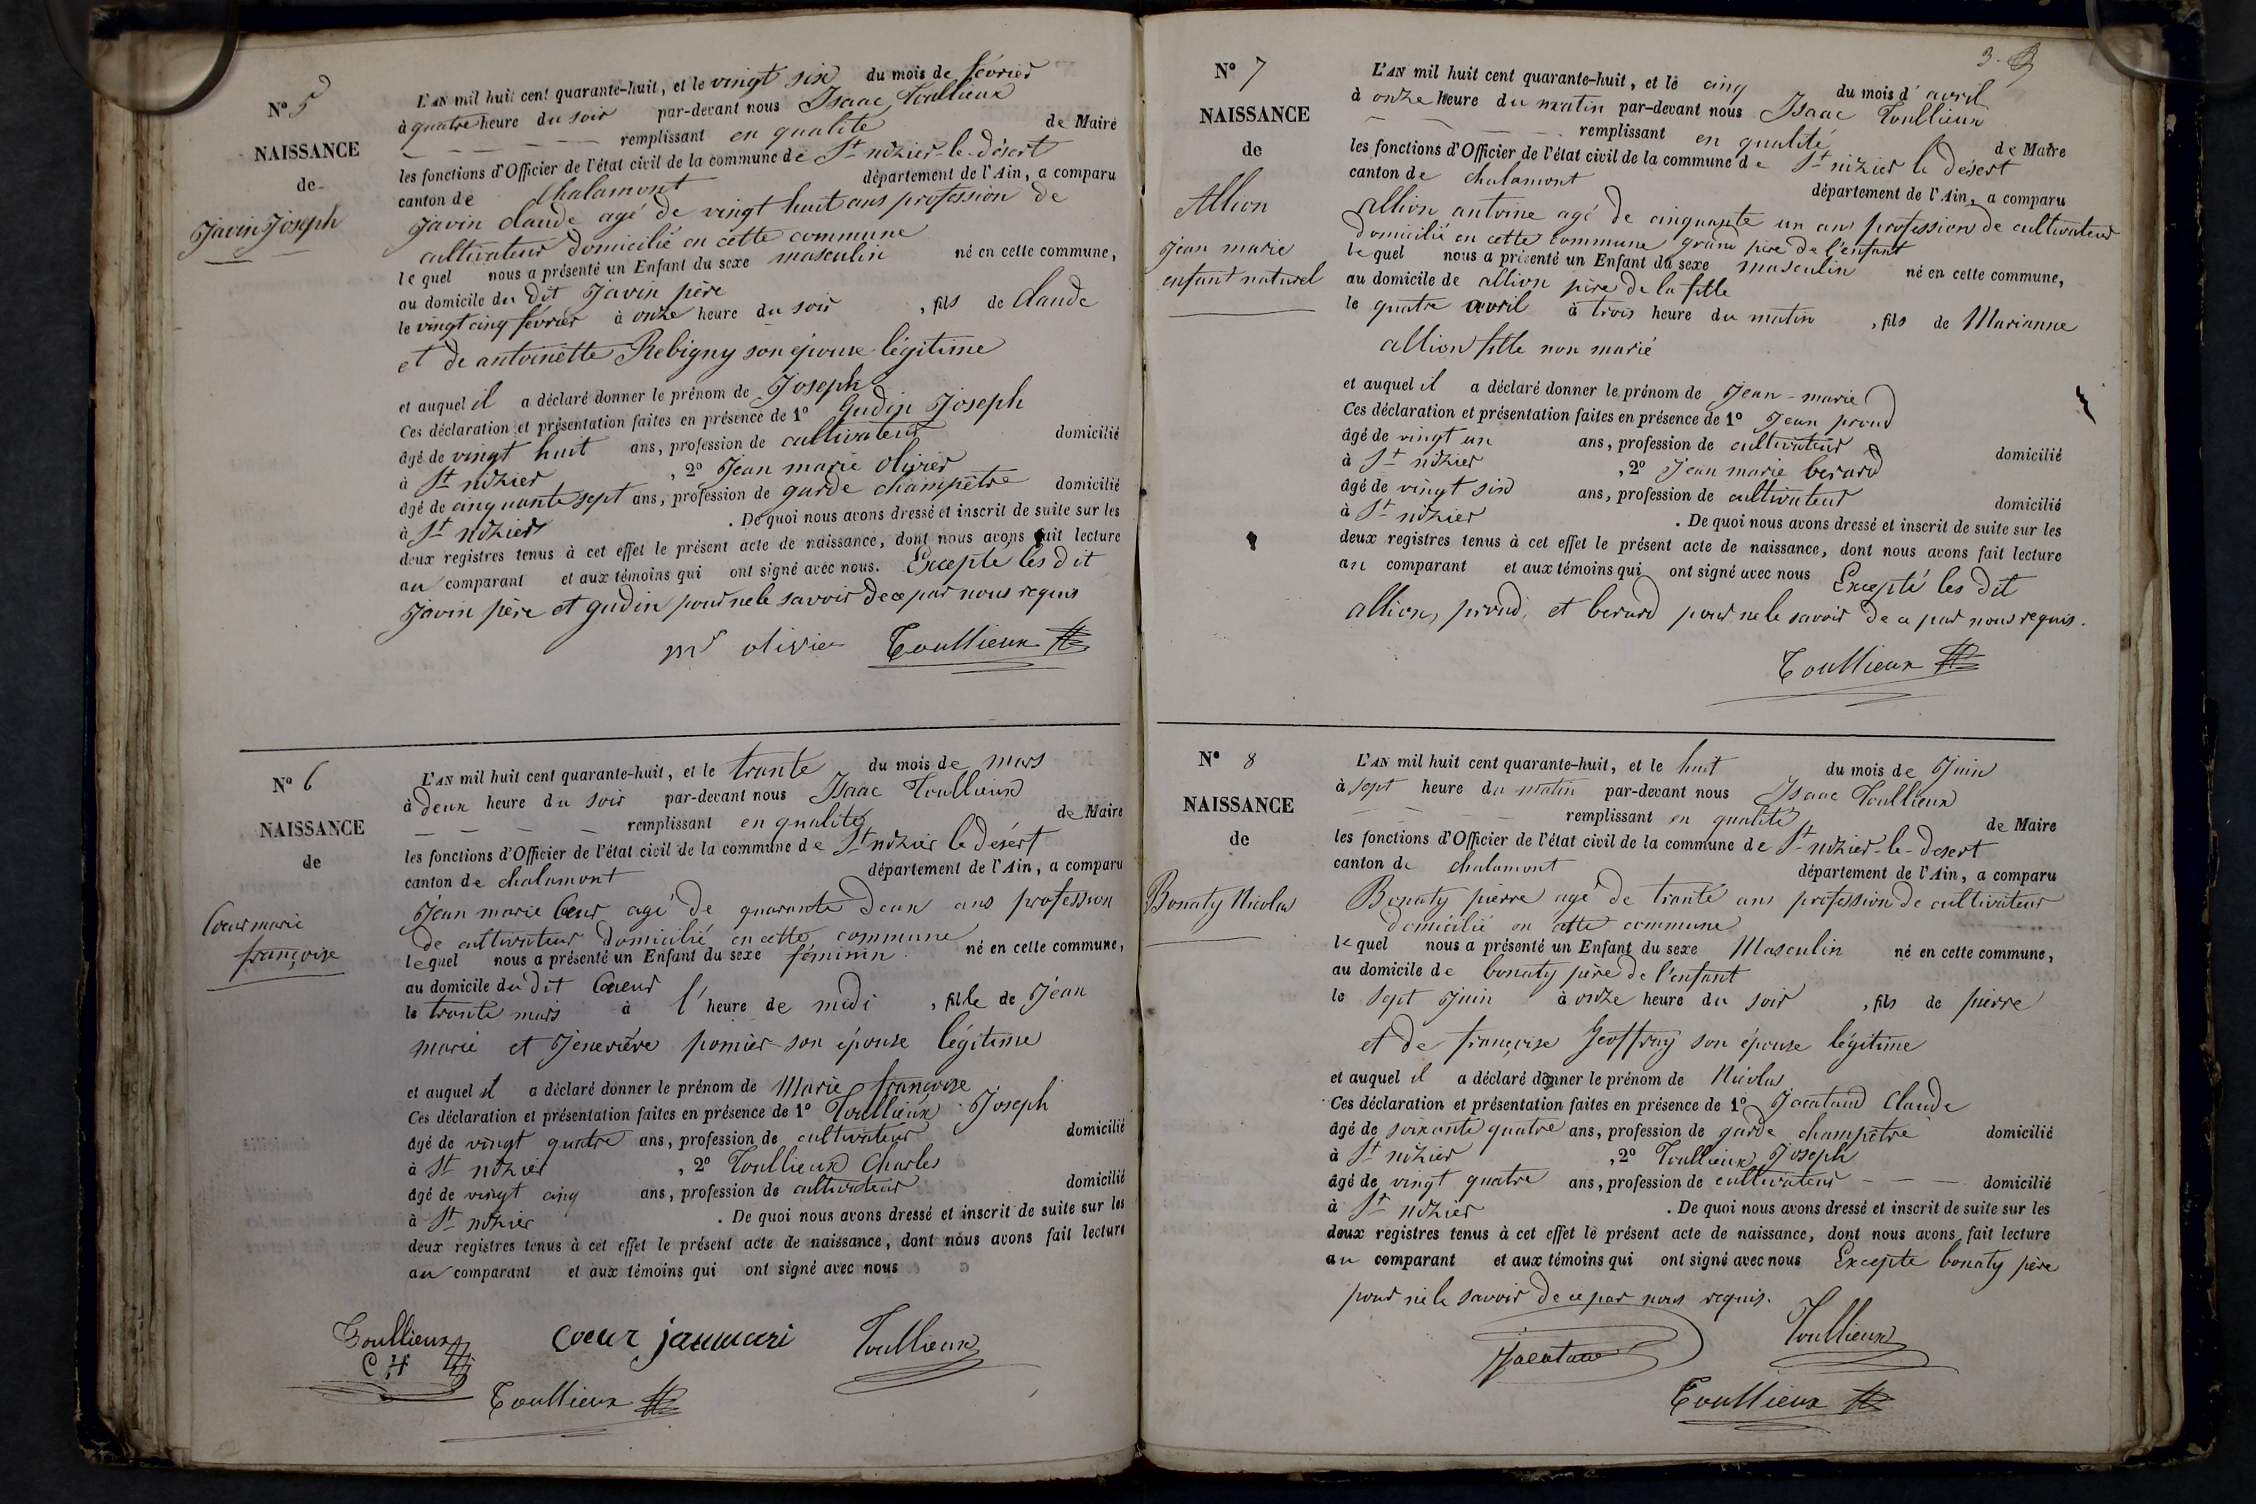 N° 5
NAISSANCE
de
Javin Joseph
L'AN mil huit cent quarante-huit, et le vingt six du mois de février
à quatre heure du soir par-devant nous Isaac Toullieux
remplissant en qualité de Maire
les fonctions d'Officier de l'état civil de la commune de St nizier-le-désert
canton de Chalamont département de l'Ain, a comparu
Javin Claude agé de vingt huit ans profession de
cultivateur domicilié en cette commune
lequel nous a présenté un Enfant du sexe masculin né en cette commune,
au domicile du dit Javin père
le vingt cinq février à onze heure du soir, fils de Claude
et de antoinette Rebigny son épouse légitime
et auquel il a déclaré donner le prénom de Joseph
Ces déclaration et présentation faites en présence de 1° Gudin Joseph
âgé de vingt huit ans, profession de cultivateur domicilié
à St nizier, 2° Jean marie Olivier
âgé de cinquante sept ans, profession de garde champêtre domicilié
à St nizier. De quoi nous avons dressé et inscrit de suite sur les
deux registres tenus à cet effet le présent acte de naissance, dont nous avons fait lecture
au comparant et aux témoins qui ont signé avec nous. Excepté les dit
Javin père et gudin pour ne le savoir de ce par nous requis
mr olivier Toullieux
N° 6
NAISSANCE
de
Coeur marie
françoise
L'AN mil huit cent quarante-huit, et le trante du mois de mars
à deux heure du soir par-devant nous Isaac Toullieux
remplissant en qualité de Maire
les fonctions d'Officier de l'état civil de la commune de St nizier le désert
canton de chalamont département de l'Ain, a comparu
Jean marie Coeur agé de quarante deux ans profession
de cultivateur domicilié en cette commune
lequel nous a présenté un Enfant du sexe féminin né en cette commune,
au domicile du dit Coeur
le trante mars à l'heure de midi, fille de Jean
marie et Jeneviève pomier son épouse légitime
et auquel il a déclaré donner le prénom de Marie françoise
Ces déclaration et présentation faites en présence de 1° Toullieux Joseph
âgé de vingt quatre ans, profession de cultivateur domicilié
à St nizier, 2° Toullieux Charles
âgé de vingt cinq ans, profession de cultivateur domicilié
à St nizier. De quoi nous avons dressé et inscrit de suite sur les
deux registres tenus à cet effet le présent acte de naissance, dont nous avons fait lecture
au comparant et aux témoins qui ont signé avec nous
Toullieux coeur janmari Toullieux
CH
Toullieux
3.
N° 7
NAISSANCE
de
Allion
jean marie
enfant naturel
L'AN mil huit cent quarante-huit, et le cinq du mois d'avril
à onze heure du matin par-devant nous Isaac Toullieux
remplissant en qualité de Maire
les fonctions d'Officier de l'état civil de la commune de St nizier le désert
canton de chalamont département de l'Ain, a comparu
allion antoine agé de cinquante un ans profession de cultivateur
domicilié en cette commune grand père de l'enfant
lequel nous a présenté un Enfant du sexe masculin né en cette commune,
au domicile de allion père de la fille
le quatre avril à trois heure du matin, fils de Marianne
allion fille non marié
et auquel il a déclaré donner le prénom de Jean-marie
Ces déclaration et présentation faites en présence de 1° Jean proud
âgé de vingt un ans, profession de cultivateur domicilié
à St nizier, 2° Jean marie berard
âgé de vingt six ans, profession de cultivateur domicilié
à St nizier. De quoi nous avons dressé et inscrit de suite sur les
deux registres tenus à cet effet le présent acte de naissance, dont nous avons fait lecture
au comparant et aux témoins qui ont signé avec nous Excepté les dit
allion, proud, et berard pour ne le savoir de ce par nous requis.
Toullieux
N° 8
NAISSANCE
de
Bonaty Nicolas
L'AN mil huit cent quarante-huit, et le huit du mois de Juin
à sept heure du matin par-devant nous Isaac Toullieux
remplissant en qualité de Maire
les fonctions d'Officier de l'état civil de la commune de St nizier-le-desert
canton de chalamont département de l'Ain, a comparu
Bonaty pierre agé de trante ans profession de cultivateur
domicilié en cette commune
lequel nous a présenté un Enfant du sexe Masculin né en cette commune,
au domicile de bonaty père de l'enfant
le sept Juin à onze heure du soir, fils de pierre
et de françoise Geoffray son épouse légitime
et auquel il a déclaré donner le prénom de Nicolas
Ces déclaration et présentation faites en présence de 1° Jacataud Claude
âgé de soixante quatre ans, profession de garde champêtre domicilié
à St nizier, 2° Toullieux Joseph
âgé de vingt quatre ans, profession de cultivateur - - - domicilié
à St nizier. De quoi nous avons dressé et inscrit de suite sur les
deux registres tenus à cet effet le présent acte de naissance, dont nous avons fait lecture
au comparant et aux témoins qui ont signé avec nous Excepte bonaty père
pour ne le savoir de ce par nous requis.
Jacataud Toullieux
Toullieux